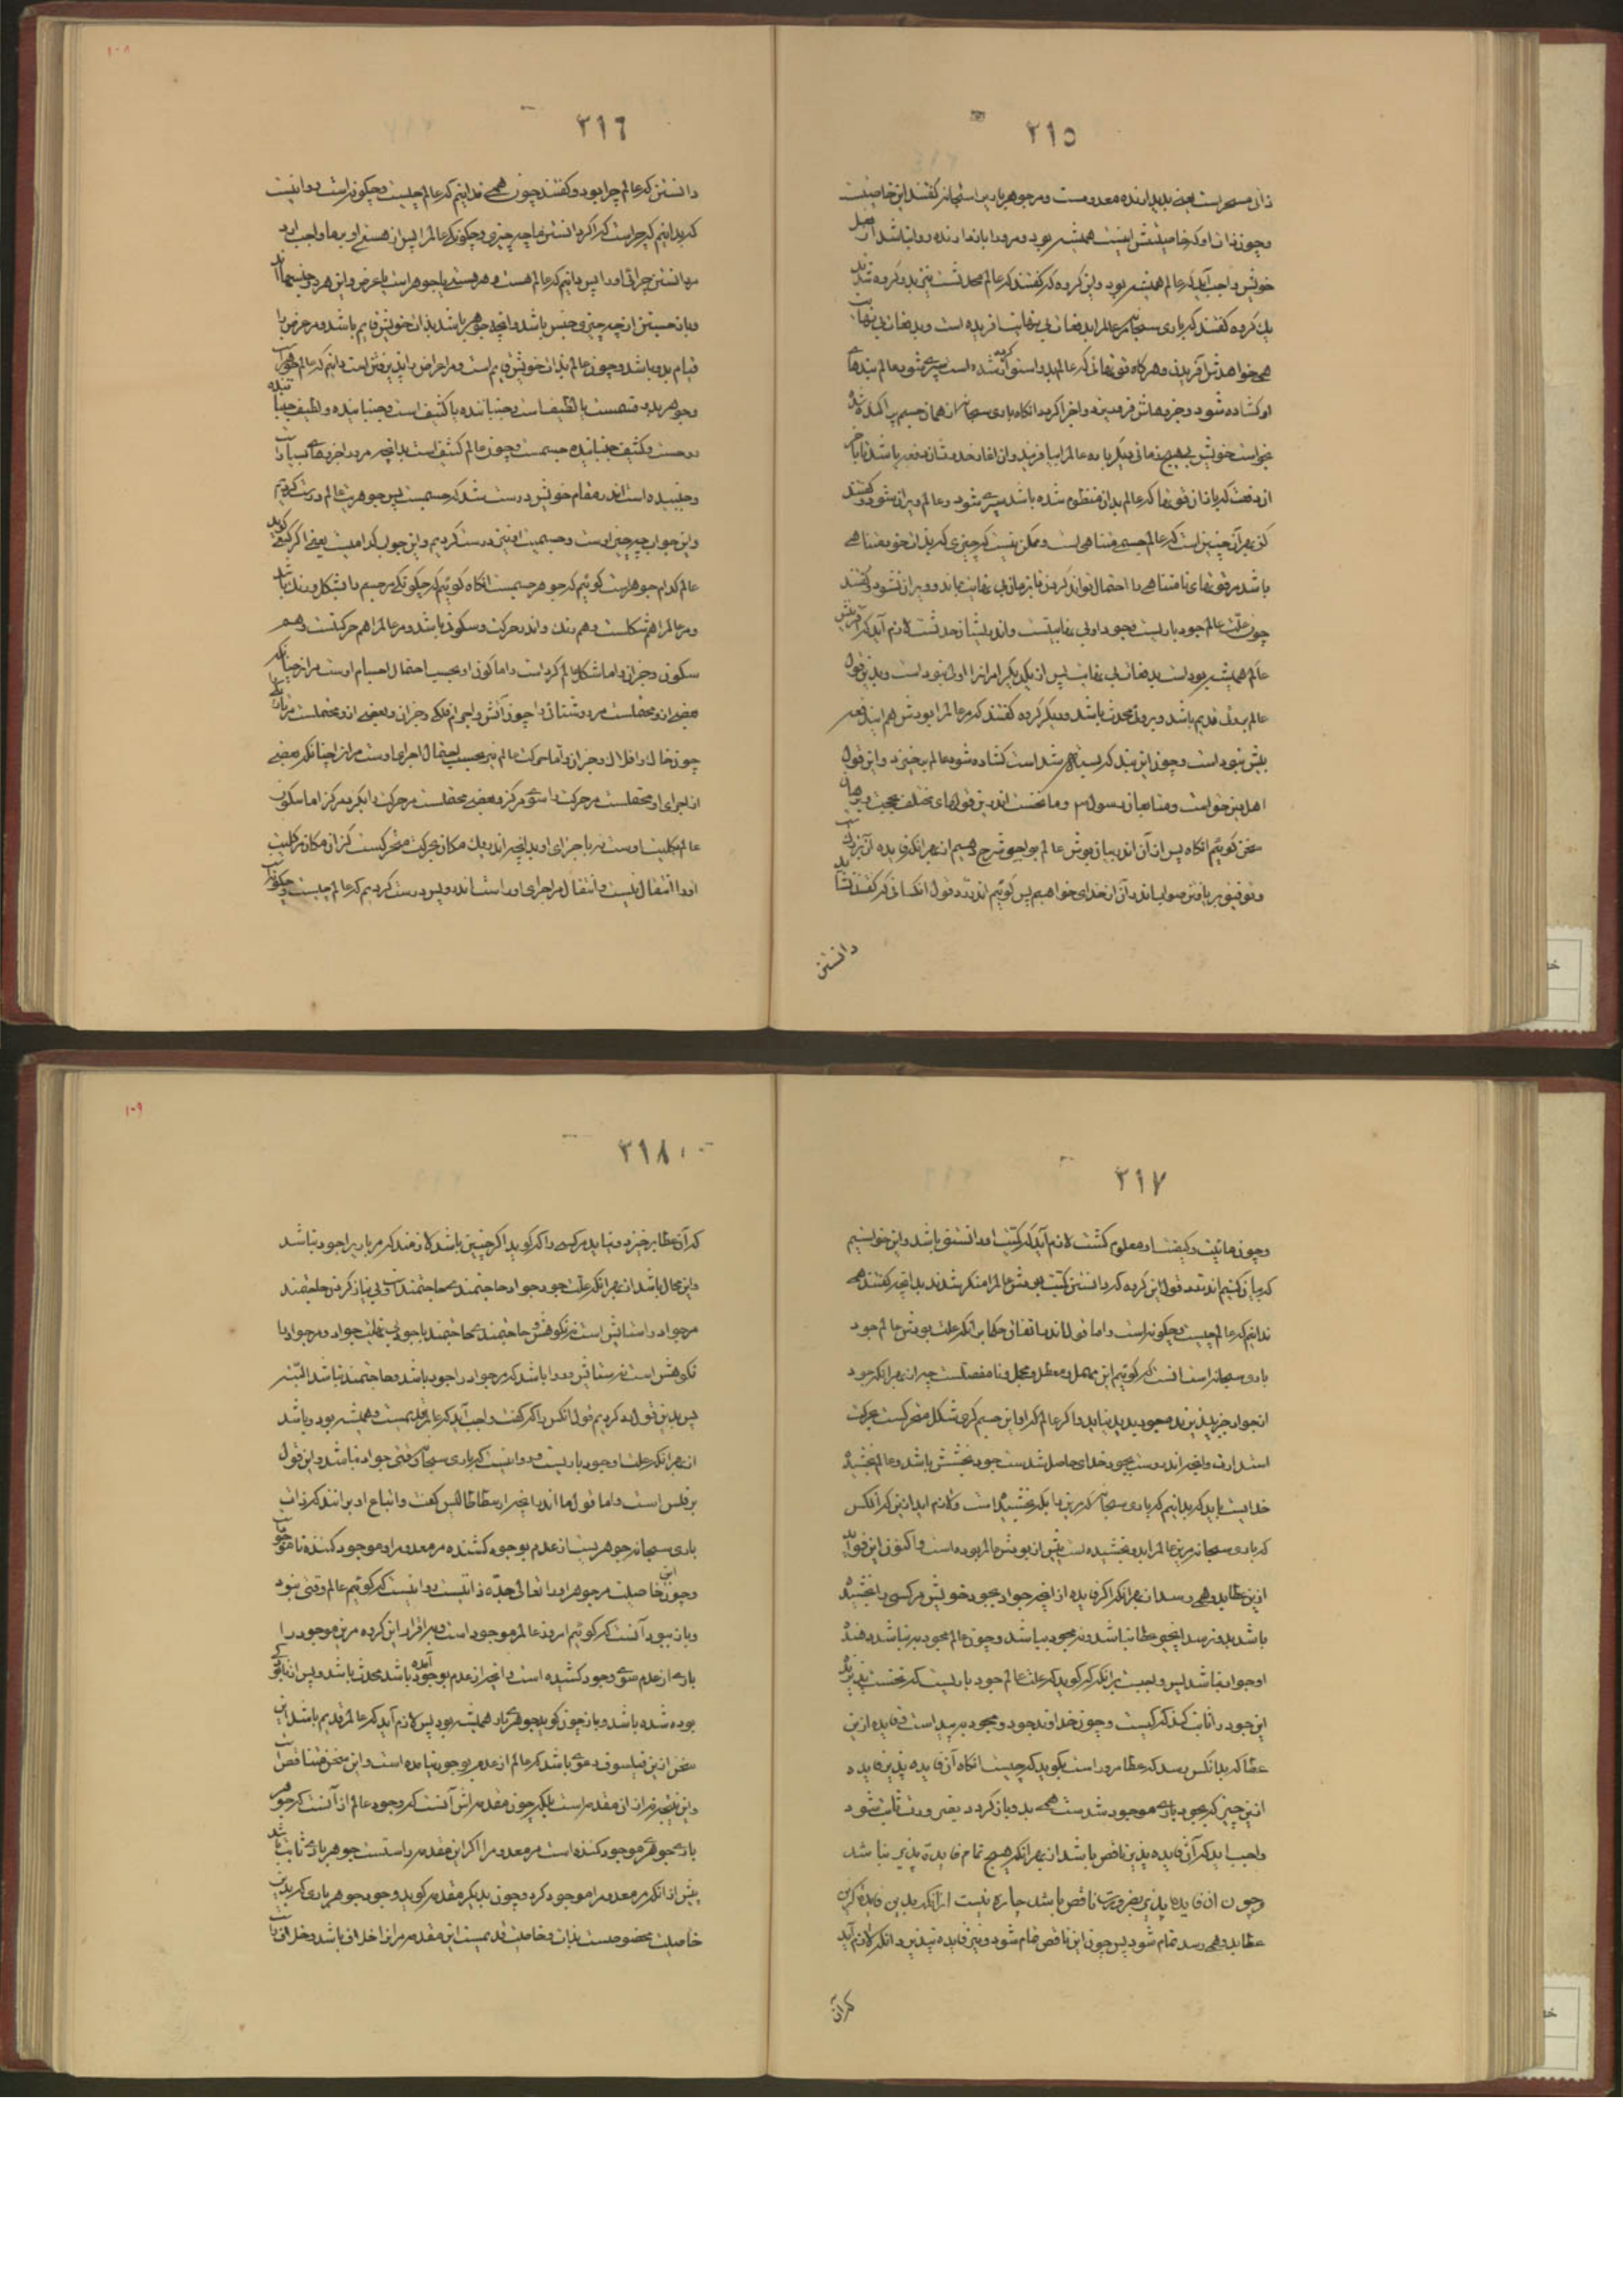 ۲۱۵
ذات مسخر است یعنی پدید آرنده معدومست و مر جوهر باری را سبحانه گفتند این خاصیتست
و چون ذات او که خاصیتش اینست همیشه بود و مرو را بازدارنده روا نباشد از فعل
خویش واجب آید که عالم همیشه بود و این گروه که گفتند که عالم محدثست نیز بدو گروه شدند
یک گروه گفتند که باری سبحانه مر عالم را بدفعات بی نهایت آفریده است و بدفعات بی نهایت
همی خواهدش آفریدن و هر گاه قوتهائی که عالم بدو استوار کرده شده است سپری شود عالم بندهای
او گشاده شود و جزوهاش فرو ریزد و اجزا گردد آنگاه باری سبحانه از همان جسم پراکنده شده
بخواست خویش بی هیچ زمانی دیگر باره عالم را بیافریند و آن آغاز حدوثان دفعه باشد تا باخر
از دفعت که باز آن قوتها که عالم بدان منظوم شده باشد سپری شود و عالم ویران شود و گفتند
کز بهر آن چنین است که عالم جسمی متناهی است و ممکن نیست که چیزی که بذات خود متناهی
باشد مر قوتهای نامتناهی را احتمال تواند کردن تا بزمان بی نهایت بماند و ویران نشود و گفتند
چون علت عالم جود باریست و جود او بی نهایتست و اندر پیشاز حدثست لازم آید که آفرینش
عالم همیشه بوداست بدفعات بی نهایت پس از یکدیگر مر آنرا اول نبود است و بدین قول
عالم بنوع قدیم باشد و بروی محدث باشد و دیگر گروه گفتند که مر عالم را بودش هم این دفعه
بیش نبود است و چون این بند که بسته شد است گشاده شود عالم برخیزد و این قول
اهل دین حق است و متابعان رسول و ما نخست اندرین قولهای مختلف بحجت و برهان
سخن گوئیم آنگاه پس از آن اندر بیان بودش عالم بواجبی شرح دهیم از بهر آنکه فایده آن بزرگست
و توفیق بر یافتن صواب اندر آن از خدای خواهیم پس گوئیم اندر رد قول آنکسانی که گفتند نشاید
دانستن
۲۱۶
دانستن که عالم چرا بود و گفتند چون همی ندانیم که عالم چیست و چگونه است روا نیست
که بدانیم که چراست که اگر دانستن ما چه چیزی و چگونگی عالم را پس از هستی او بر ما واجب آرد
مر دانستن چرائی او را پس دانیم که عالم هست و هر هستی یا جوهر است یا عرض و این هر دو جنسهااند
و باز جستن از چه چیزی و جنس باشد و آنچه جوهر باشد بذات خویش قایم باشد و مر عرض را
قیام بدو باشد و چون عالم بذات خویش قایم است و مر اعراض را پذیرفتن است دانیم که عالم جوهر است
و جوهر بدو قسمست یا لطیف است و جنباننده یا کثیف است و جنبانیده و لطیف جنباننده
روحست و کثیف جنبانیده جسمست و چون عالم کثیف است بدانچه مرورا جزوهای بسیار است
و جنبیده است اندر مقام خویش درست شد که جسمست پس جوهریت عالم درست کردیم
و این جواب چه چیز اوست و جسمیت او نیز درست کردیم و این جواب کدامیست یعنی اگر کسی گوید
عالم کدام جوهر است گوئیم که جوهر جسمست آنگاه گوئیم که چگونگی مر جسم را بشکل و رنگ باشد
و مر عالم را هم شکلست و هم رنگ و اندر حرکت و سکون باشد و مر عالم را هم حرکتست و هم
سکون و جز آن و اما شکل عالم گرد است و اما گون او بحسب احتمال اجسام اوست مر آنرا چنانکه
بعضی ازو محتملست مر روشنائی را چون آتش و اجرام فلکی و جز آن و بعضی ازو محتملست مر تاریکی
چون خاک و افلاک و جز آن و اما حرکت عالم نیز بحسب احتمال اجزای اوست مر آنرا چنانکه بعضی
از اجزای او محتملست مر حرکت را سوی مرکز و بعضی محتملست مر حرکت را بگرد مرکز اما سکون
عالم بکلیت اوست نه با جزای او بدانچه اندر یک مکان بحرکت متحرکست کز آن مکان مر کلیت
او را انتقال نیست و انتقال مر اجزای او راست اندرو پس درست کردیم که عالم چیست و چگونه است
۲۱۷
و چون مائیت و کیفیت او معلوم گشت لازم آید که کمیت او دانستنی باشد و این خواستیم
که بیان کنیم اندر رد قول این گروه که دانستن کمیت بودش عالم را منکر شدند بدانچه گفتند همی
ندانیم که عالم چیست و چگونه است و اما قول ما اندر اتفاق حکما بر آنکه علت بودش عالم جود
باری سبحانه است آنست که گوئیم این مهمل و معطل و مجمل و نامفصلست چه از بهر آنکه جود
از جواد جز پذیرنده جود پدید نیاید و اگر عالم که او این جسم کری شکل متحرکست بحرکت
استدارت و آنچه اندروست بجود خدای حاصل شدست جود بخشش باشد و عالم بخشیده
خدایست باید که بدانیم که باری سبحانه مر این را بکه بخشیده است و لازم آید از این که آنکس
که باری سبحانه مر این عالم را بدو بخشیده است پیش از بودش عالم بوده است و اکنون این فواید
از این عطا بدو همی رسد از بهر آنکه اگر فایده از آنچه جواد بجود خویش مر کسی را بخشیده
باشد بدو نرسد آنچیز عطا نباشد و نه بجود بباشد و چون عالم بجود نباشد دهنده
او جواد نباشد پس واجبست بر آنکه گوید که علت عالم جود باریست که نخست پذیرنده
این جود را ثابت کند که کیست و چون خداوند جود و بجود برسد است و فایده از این
عطا که بدانکس رسد که عطا مرو راست بگوید که چیست آنگاه آن فایده پذیر فایده
از این چیز که بجود باری موجود شد ست همی بدو باز گردد یعنی درست ثابت شود
واجب آید که آن فایده پذیر ناقص باشد از بهر آنکه هیچ تمام فایده پذیر نباشد
و چون آن فایده پذیر بضرورت ناقص باشد چاره نیست از آنکه بدین فایده کزین
عطا بدو همی رسد تمام شود پس چون این ناقص تمام شود و نیز فایده نپذیرد آنگه لازم آید
که آن
۲۱۸
که آن عطا برخیزد و نباید مر کسی را که گوید اگر چنین باشد لازم آید که مر باری را جود نباشد
و این محال باشد از بهر آنکه علت جود جواد حاجتمندی حاجتمند است و بی نیاز کردن حاجتمند
مر جواد را ستایش است نه نکوهش و حاجتمندی حاجتمند با جود بی نهایت جواد و مر جواد را
نکوهش است نه ستایش و روا باشد که مر جواد را جود باشد و حاجتمند نباشد البته
پس بدین قول رد کردیم قول آنکس را که گفت واجب آید که عالم قدیمست و همیشه بود و باشد
از بهر آنکه علت او جود باریست و روا نیست که باری سبحانه وقتی جواد نباشد و این قول
برقلس است و اما قول ما اندر آنچه ارسطاطالیس گفت و اتباع او برآنند که ذات
باری سبحانه جوهریست از عدم بوجود کشنده مر معدوم را و موجود کننده ناموجود است
و چون این خاصیت مر جوهر او را تعالی جده ذاتیست روا نیست که گوئیم عالم وقتی نبود
و باز ببود آنست که گوئیم امروز عالم موجود است و باقرار این گروه مر این موجود را
باری از عدم سوی وجود کشیده است و آنچه از عدم بوجود آمده باشد محدث باشد و پس از نابودگی
بوده شده باشد و باز چون گوید جوهر باری همیشه بود پس لازم آید که عالم قدیم باشد این
سخن از این فیلسوف دعوی باشد که عالم از عدم بوجود نیامده است و این سخن متناقض است
و این نتیجه نه از آن مقدمه است بلکه چون مقدمه اش آنست که وجود عالم از آنست که جوهر
باری جوهری موجود کننده است مر معدوم را اگر این مقدمه راستست جوهر باری ثابت باشد
پیش از آنکه مر معدوم را موجود کرد و چون بدیگر مقدمه گوید وجود جوهر باری که بدین
خاصیت مخصوصست بذات و خاصیت قدیمست این مقدمه مر این را خلاف باشد و خلاف با